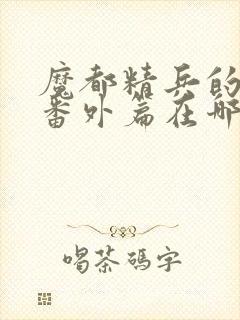 魔都精兵的
番外篇在哪
喝茶碼字